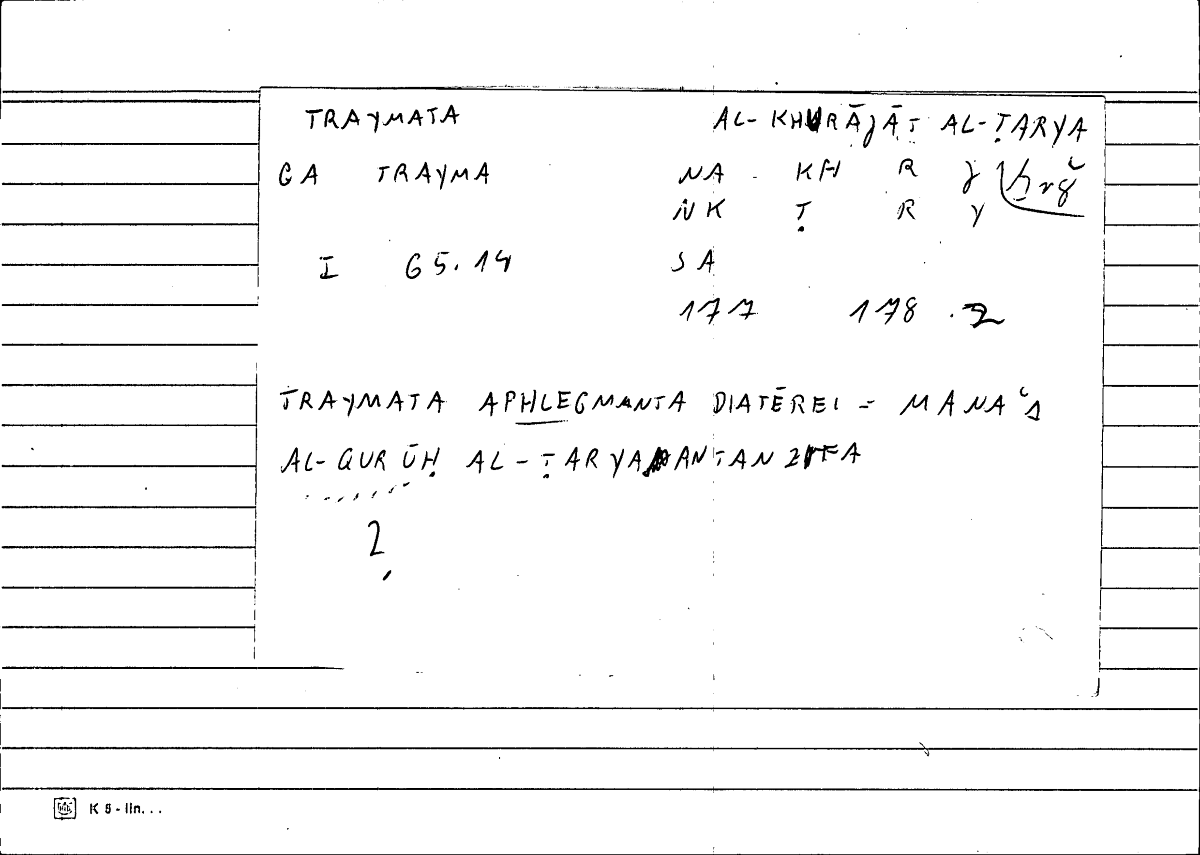 TRAYMATA AL-KHURĀJĀT AL-ṬARYA
GA TRAYMA NA KH R J ḫrǧ
NK Ṭ R Y
I 65.14 SA
177 178.2
TRAYMATA APHLEGMANTA DIATĒREI = MANA'A
AL-QURŪḤ AL-ṬARYA AN TANZIFA
?
K 5 - lin...